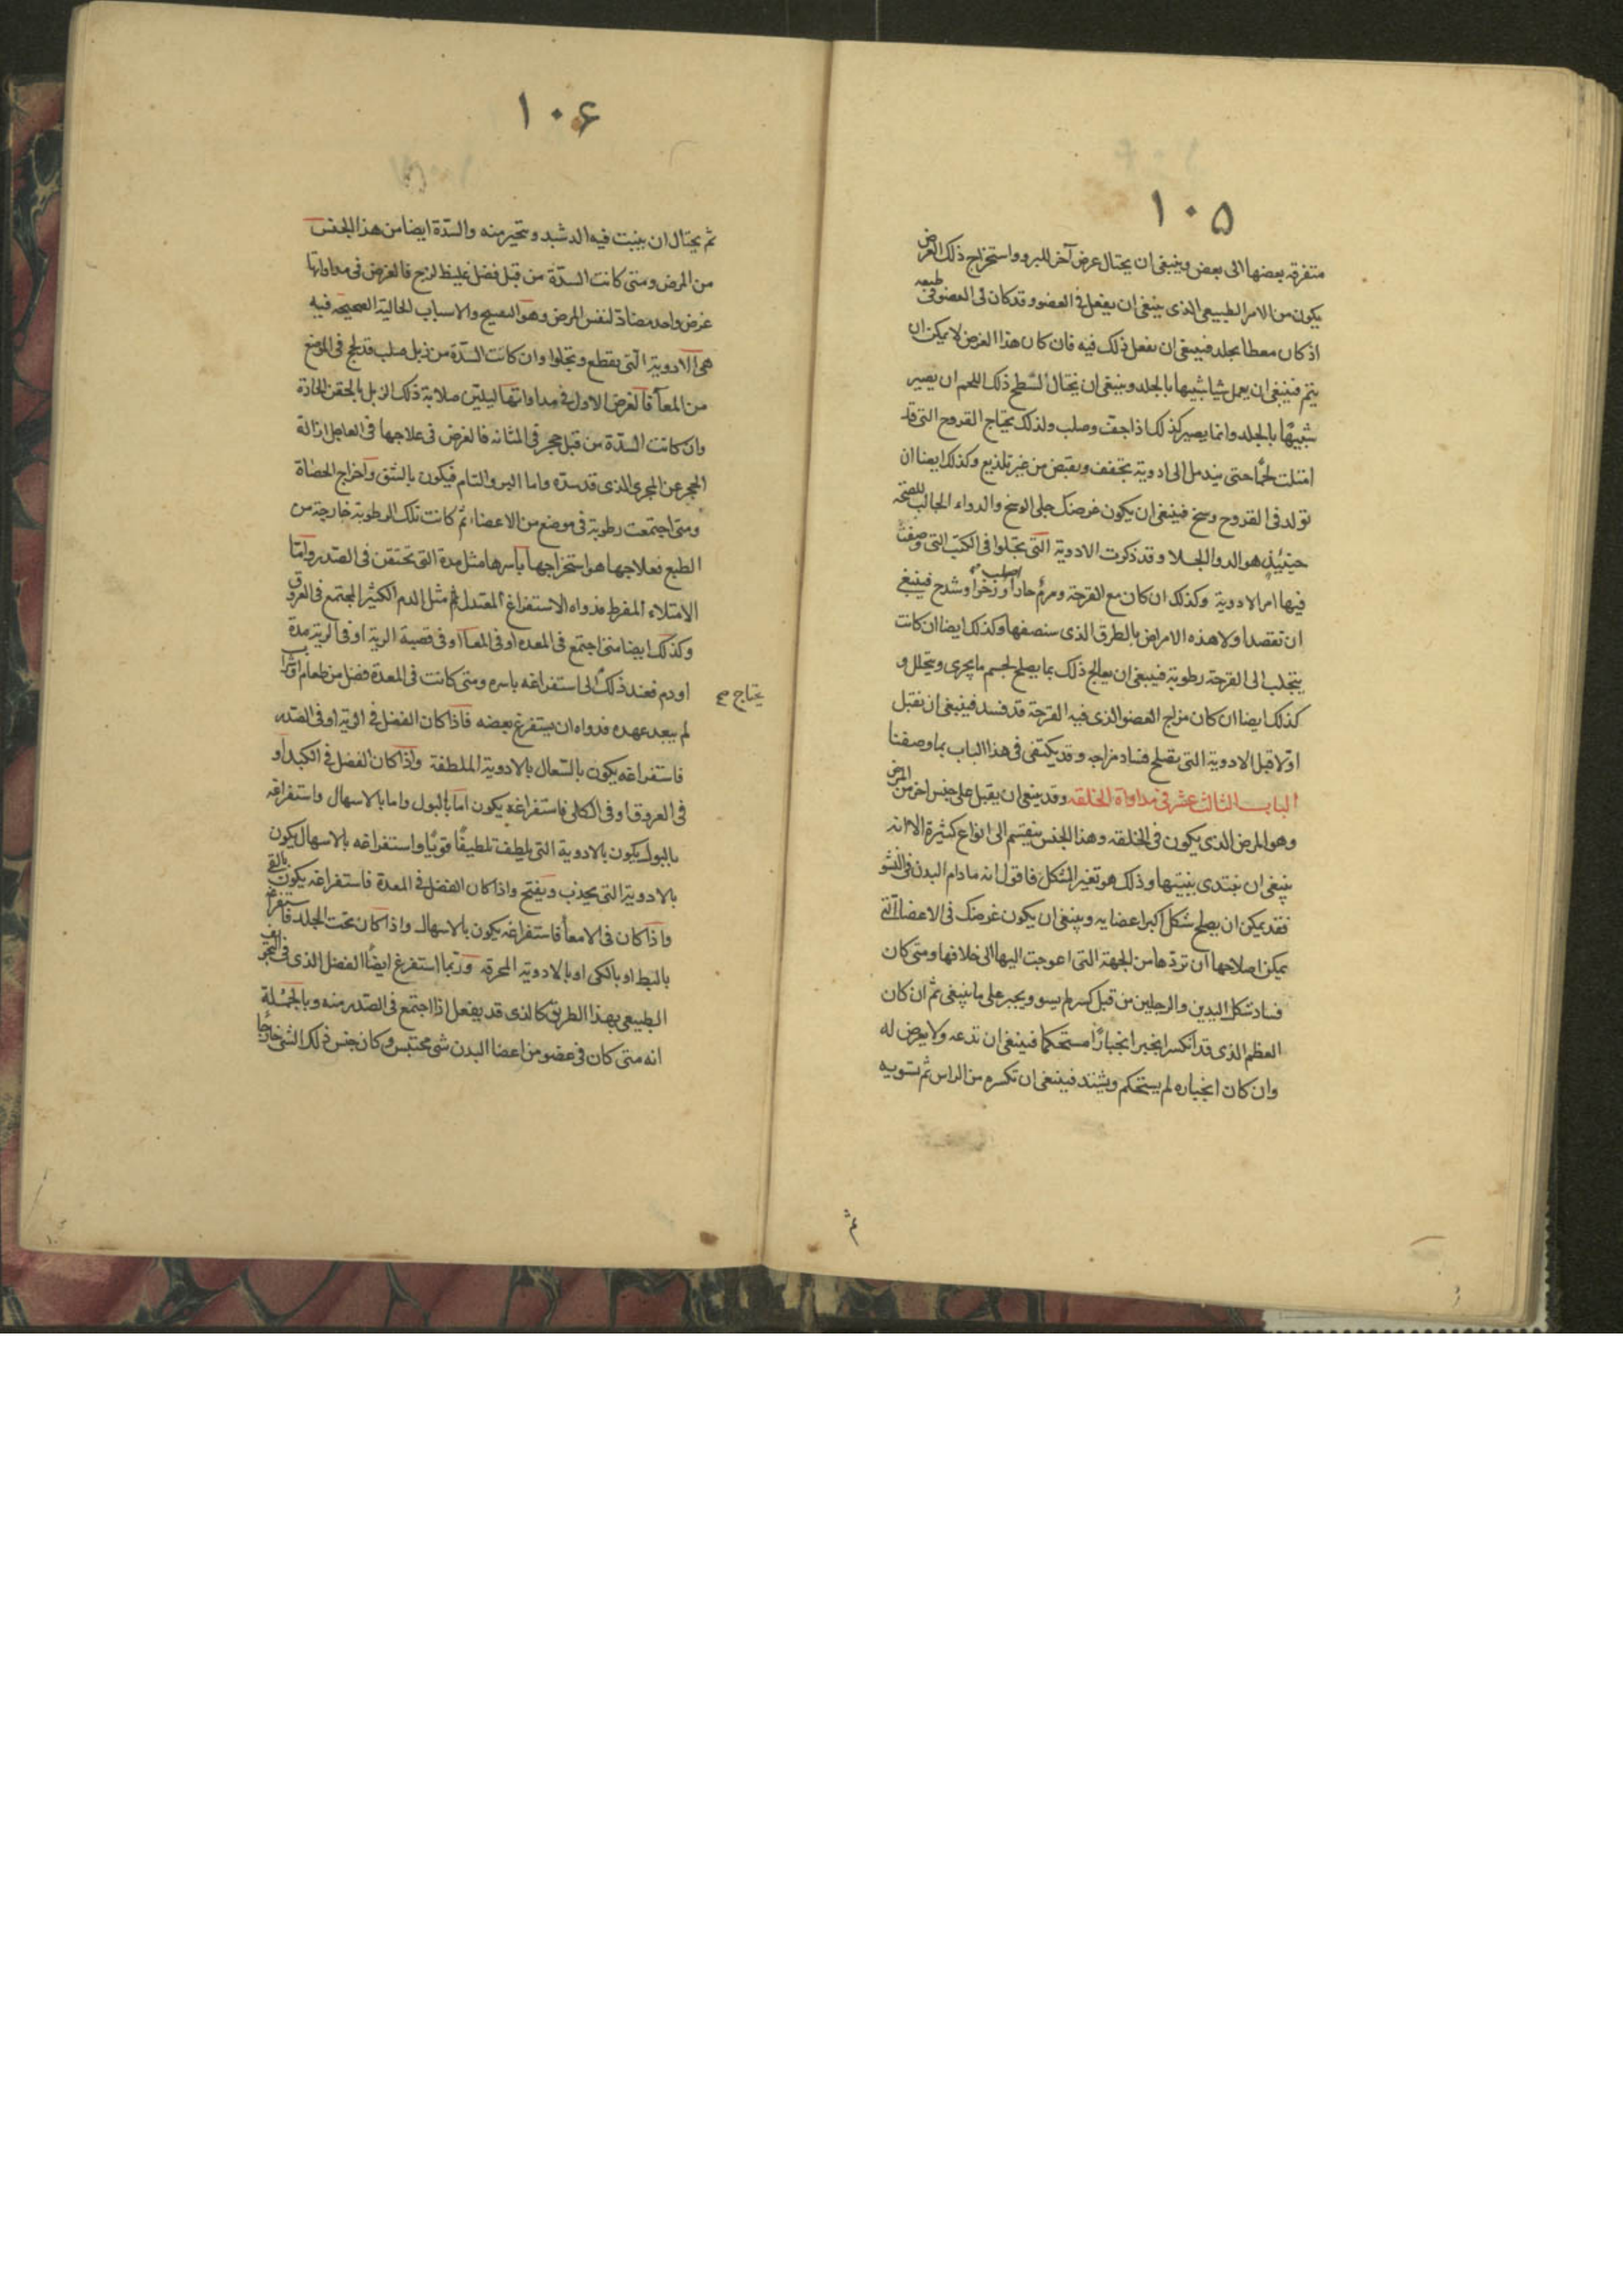 ١٠٥
متفرقه بعضها الى بعض وينبغى ان يحتال عرض آخر للبرو واستخراج ذلك الغرض
يكون من الامر الطبيعى الذى ينبغى ان يفعل فى العضو وقد كان فى العضو فى طبيعه
اذ كان مغطا بجلد فينبغى ان نفعل ذلك فيه فان كان هذا الغرض لا يمكن ان
يتم فينبغى ان يعمل شيا شبيها بالجلد وينبغى ان نحتال لسطح ذلك اللحم ان يصير
شبيهًا بالجلد وانما يصير كذلك اذا جف وصلب ولذلك يحتاج القروح التى قد
امتلت لحمًا حتى يندمل الى ادوية تجفف وتقبض من غير تلذيع وكذلك ايضا ان
تولد فى القروح وسخ فينبغى ان يكون غرضك جلى الوسخ والدواء الجالب للصحة
حينئيذٍ هو الدوا الجلا وقد ذكرت الادوية التى تجلوا فى الكتب التى وصفت
فيها امر الادوية وكذلك ان كان مع القرحة ورم حار او صلب او رخوا وشدخ فينبغى
ان تقصد اولا هذه الامراض بالطرق الذى سنصفها وكذلك ايضا ان كانت
يتجلب الى القرحة رطوبة فينبغى ان يعالج ذلك بما يصلح لجسم ما يجرى ويتحلل و
كذلك ايضا ان كان مزاج العضو الذى فيه القرحة قد فسد فينبغى ان نقبل
اولا قبل الادوية التى تصلح فساد مزاجه وقد يكتفى فى هذا الباب بما وصفنا
الباب الثالث عشر فى مداواة الخلقه وقد ينبغى ان يقبل على جنس اخر من المرض
وهو المرض الذى يكون فى الخلقه وهذا الجنس ينقسم الى انواع كثيرة الا انه
ينبغى ان نبتدى بنيتها وذلك هو تغير الشكل فاقول انه مادام البدن فى النشو
فقد يمكن ان يصلح شكل اكبر اعضايه وينبغى ان يكون غرضك فى الاعضا التى
يمكن اصلاحها ان تردها من الجهة التى اعوجت اليها الى خلافها ومتى كان
فساد شكل اليدين والرجلين من قبل كسر لم يسو ويجبر على ما ينبغى ثم ان كان
العظم الذى قد انكسر انجبر انجبارًا مستحكما فينبغى ان تدعه ولا يعرض له
وان كان انجباره لم يستحكم ويشتد فينبغى ان تكسره من الراس ثم تسويه
ثم
١٠۶
ثم يحتال ان ينبت فيه الدشبد ويتحيز منه والسدة ايضا من هذا الجنس
من المرض ومتى كانت السدة من قبل فضل غليظ لزج فالغرض فى مداواتها
غرض واحد مضادة لنفس المرض وهو التفتيح والاسباب الحالية الصحيحه فيه
هى الادوية التى تقطع وتجلوا وان كانت السدة من زبل صلب قد لحج فى الموضع
من المعا فالغرض الاول فى مداواتها ليلين صلابة ذلك الزبل بالحقن الحادة
وان كانت السدة من قبل حجر فى المثانه فالغرض فى علاجها فى العاجل ازالة
الحجر عن المجرى الذى قد سده واما البر والتام فيكون بالشق واخراج الحصاة
ومتى اجتمعت رطوبة فى موضع من الاعضا، ثم كانت تلك الرطوبة خارجة من
الطبع فعلاجها هو استخراجها باسرها مثل مدة التى تحتقن فى الصدر واما
الامتلاء المفرط فدواه الاستفراغ المعتدل ثم مثل الدم الكثير المجتمع فى العروق
وكذلك ايضا متى اجتمع فى المعده او فى المعا او فى قصبة الرية او فى الرية مدة
او دم فعند ذلك الى استفراغه باسره ومتى كانت فى المعدة فضل من طعام او شراب
يحتاج صح
لم يبعد عهده فدواه ان يستفرغ بعضه فاذا كان الفضل فى الرية او فى الصدر
فاستفراغه يكون بالسعال بالادوية الملطفة واذا كان الفضل فى الكبد او
فى العروق او فى الكلى فاستفراغه يكون اما بالبول واما بالاسهال واستفراغه
بالبول يكون بالادوية التى يلطف تلطيفًا قويًا واستفراغه بالاسهال يكون
بالادوية التى يجذب ويفتح واذا كان الفضل فى المعدة فاستفراغه يكون بالقى
واذا كان فى الامعا فاستفراغه يكون بالاسهال واذا كان تحت الجلد فاستفراغه
بالبط او بالكى او بالادوية المحرقه وربما استفرغ ايضًا الفضل الذى فى التجويف
الطبيعى بهذا الطريق كالذى قد يفعل اذا اجتمع فى الصدر منه وبالجملة
انه متى كان فى عضو من اعضا البدن شى محتبس وكان جنس ذلك الشى خارجًا